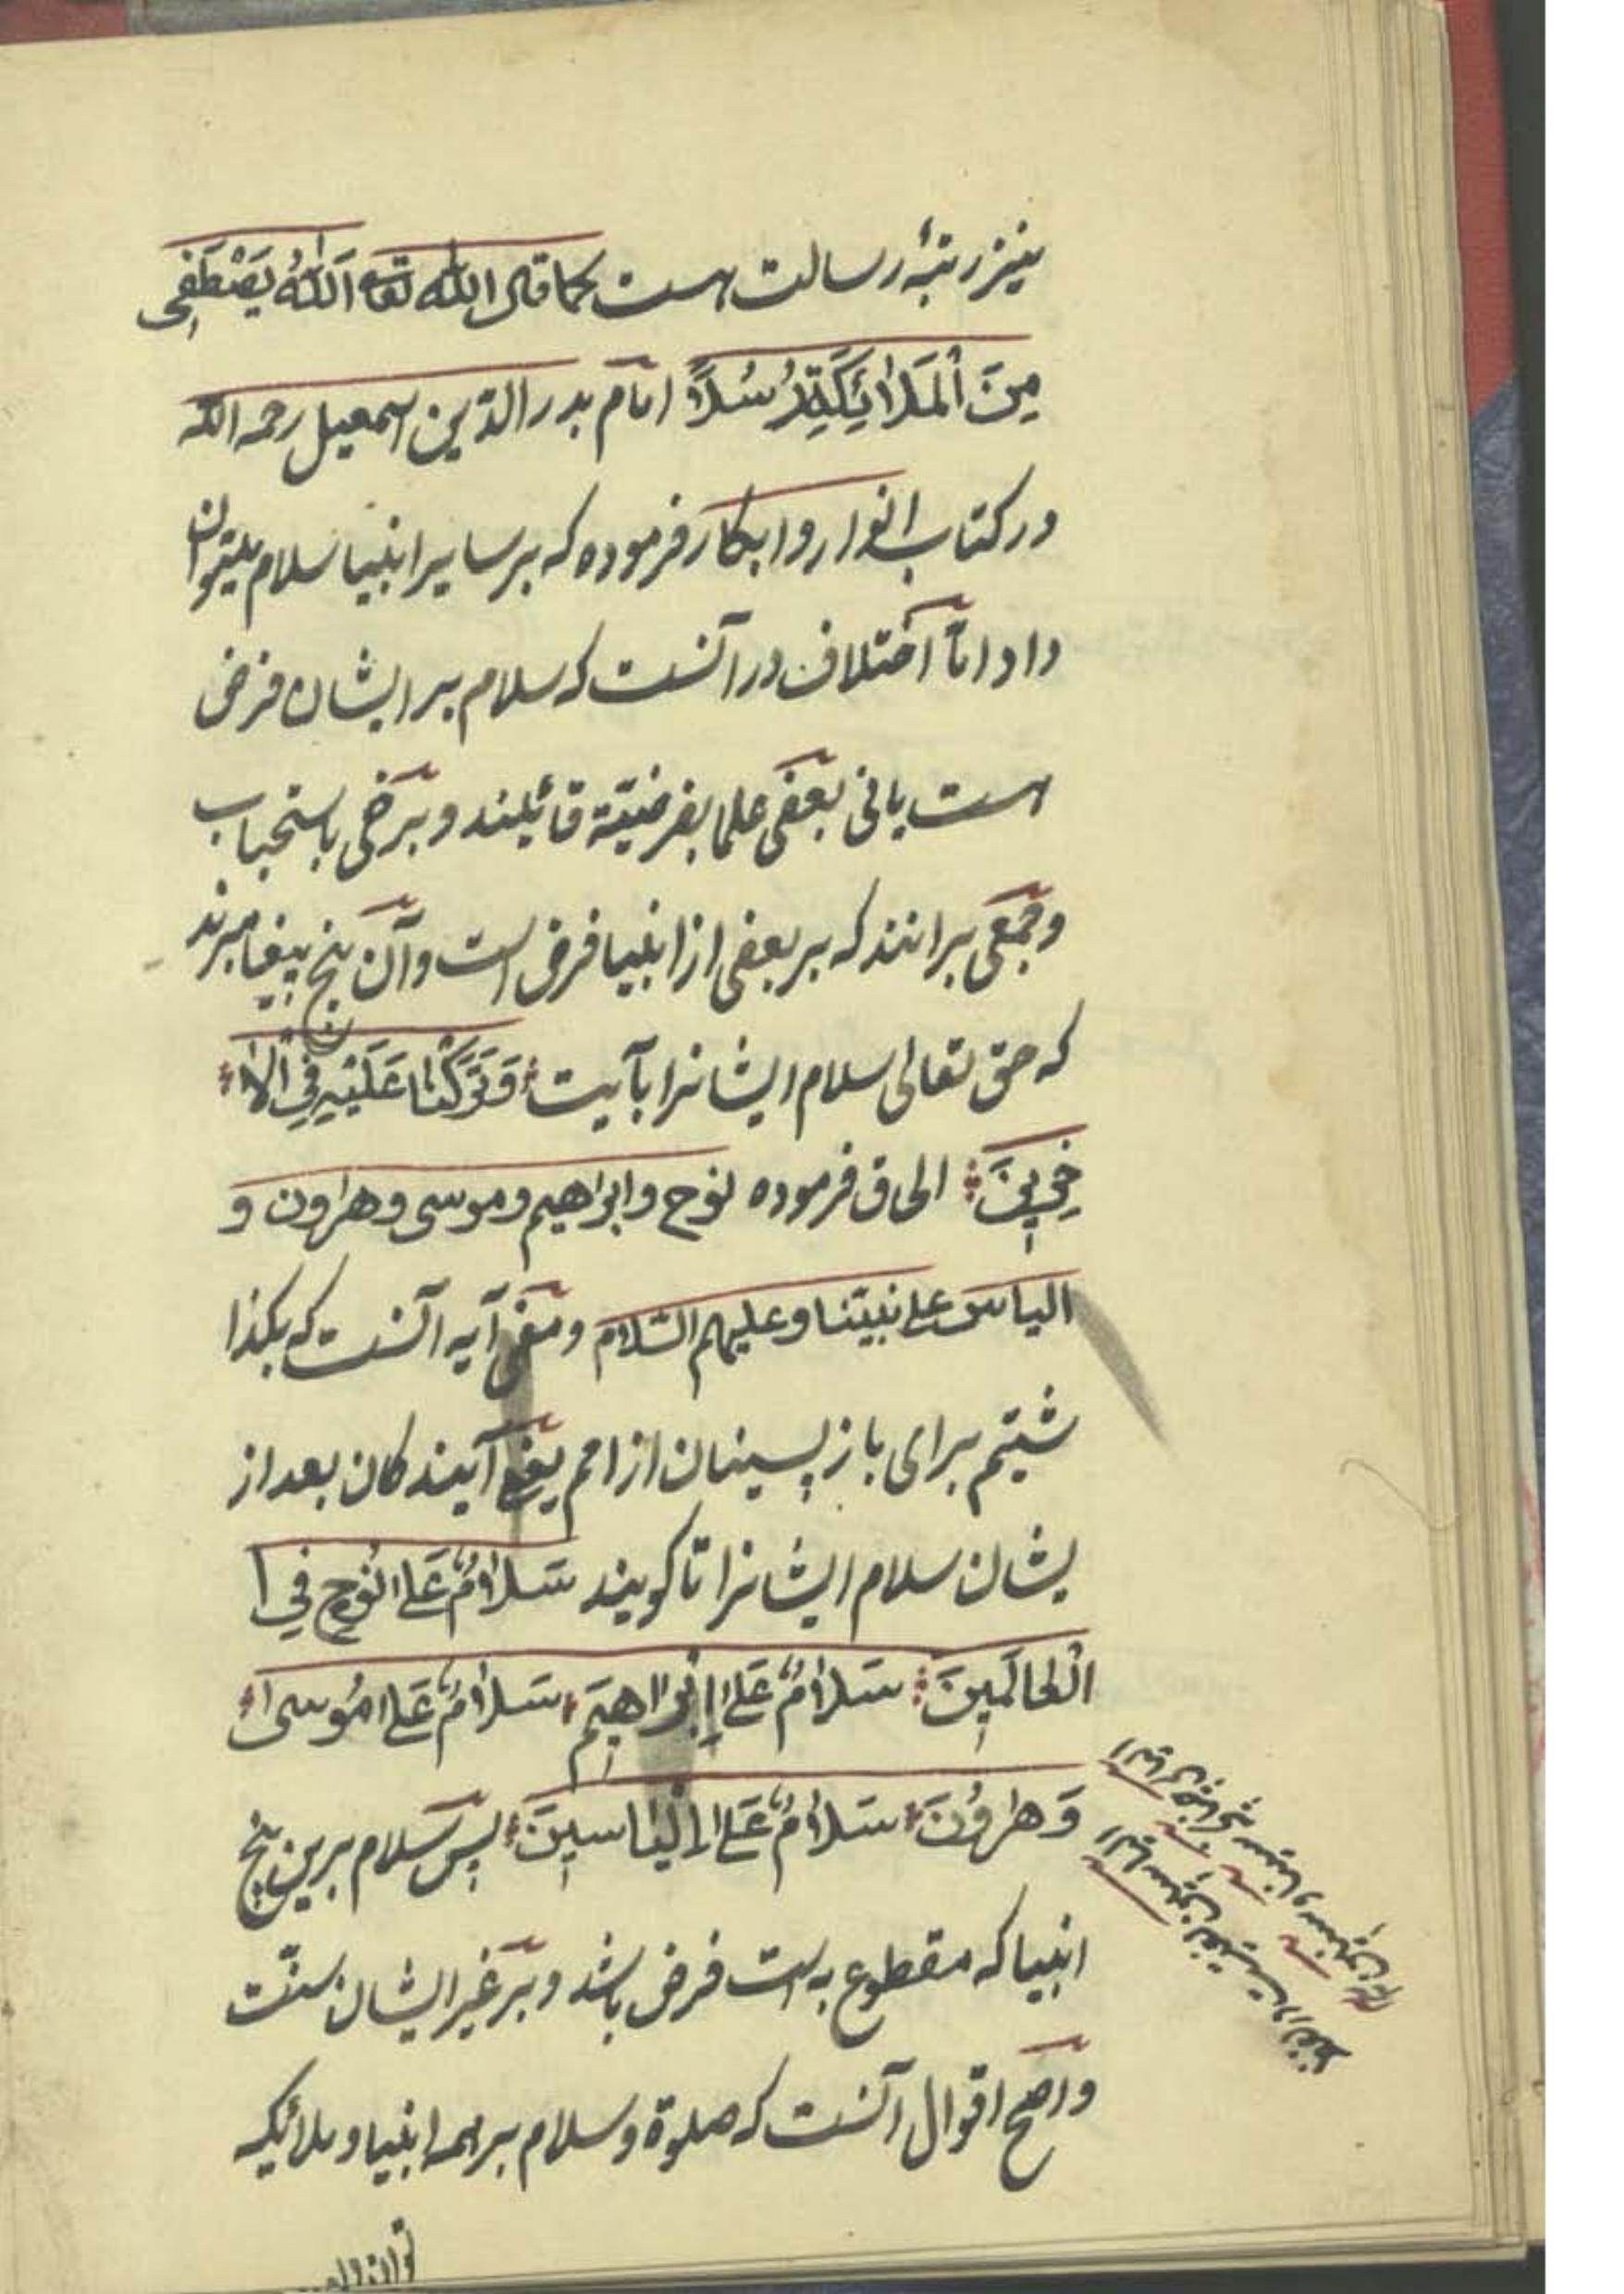 نیز رتبهٔ رسالت هست کما قال الله تعا اَللّٰهُ یَصْطَفِی
مِنَ الْمَلٰائِکَةِ رُسُلاً امام بدر الدین اسمعیل رحمه الله
در کتاب انوار و ابکار فرموده که بر سایر انبیا سلام میتوان
داد امّا اختلاف در آنست که سلام بر ایشان فرض
هست یا نی بعضی علما بفرضیّة قائلند و برخی باستحباب
و جمعی برانند که بر بعضی از انبیا فرض است و آن پنج پیغامبرند
که حق تعالی سلام ایشانرا بآیت وَتَرَکْنٰا عَلَیْهِ فِی الْاٰ
خِرِینَ الحاق فرموده نوح و ابراهیم و موسی و هٰرون و
الیاس علی نبیّنا و علیهم السّلام و معنی آیه آنست که بگذا
شتیم برای باز پسینان از امم یعنی آیندکان بعد از
یشان سلام ایشانرا تا کویند سَلٰامٌ عَلٰی نُوحٍ فِی ا
الْعٰالَمِینَ سَلٰامٌ عَلٰی اِبْرٰاهِیمَ سَلٰامٌ عَلٰی مُوسٰی
وَهٰرُونَ سَلٰامٌ عَلٰی اِلْیٰاسِینَ پس سلام برین پنج
انبیا که مقطوع به است فرض باشد و بر غیر ایشان سنّت
و اصح اقوال آنست که صلوة و سلام بر همه انبیا و ملائکه